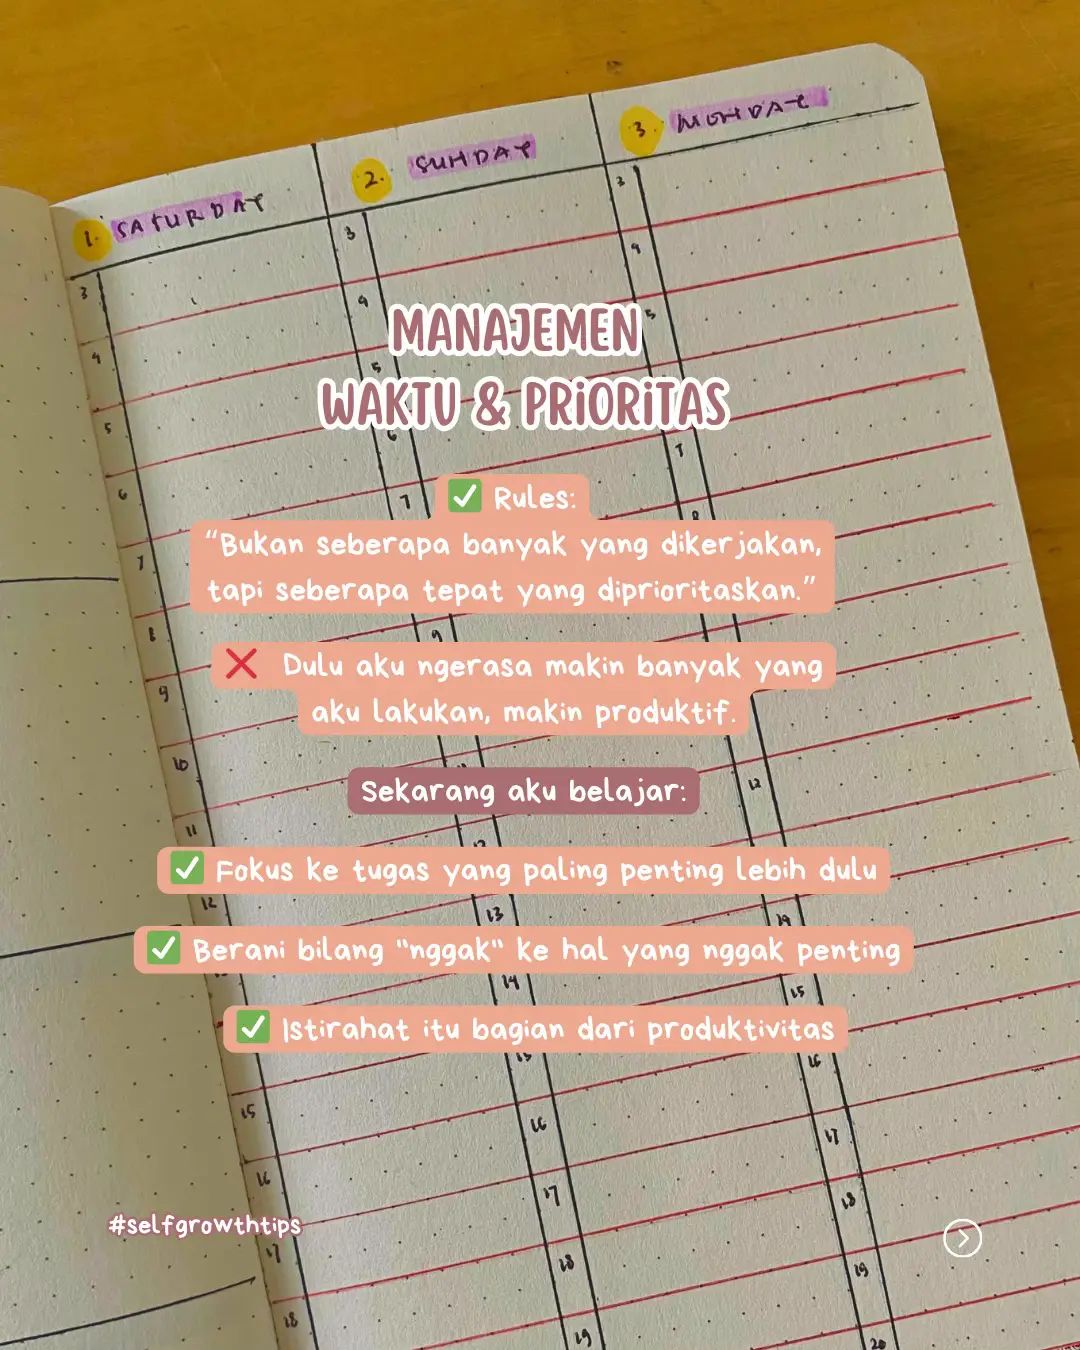 1. SATURDAY
2. SUNDAY
3. MONDAY
MANAJEMEN
WAKTU & PRIORITAS
✅ Rules:
“Bukan seberapa banyak yang dikerjakan,
tapi seberapa tepat yang diprioritaskan.”
❌ Dulu aku ngerasa makin banyak yang
aku lakukan, makin produktif.
Sekarang aku belajar:
✅ Fokus ke tugas yang paling penting lebih dulu
✅ Berani bilang "nggak" ke hal yang nggak penting
✅ Istirahat itu bagian dari produktivitas
#selfgrowthtips
3
4
5
6
7
8
9
10
11
12
15
16
17
18
3
4
5
6
7
9
13
14
16
17
18
19
3
4
5
7
8
12
14
15
16
17
18
19
20